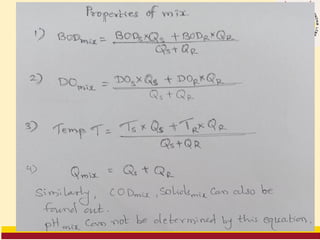 Properties of mix
1) BODmix = BODS×QS + BODR×QR
QS+QR
2) DOmix = DOS×QS + DOR×QR
QS + QR
3) Temp T = TS × QS + TR× QR
QS+QR
4) Qmix = QS + QR
Similarly, CODmix, Solidsmix can also be
found out.
pHmix can not be determined by this equation.